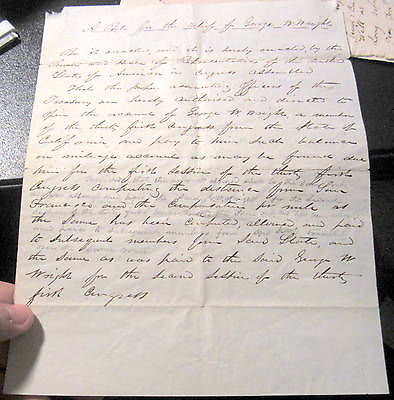 A Bill for the Relief of George W. Wright
Be it enacted, and it is hereby enacted, by the
Senate and House of Representatives of the United
States of America in Congress assembled
That the proper accounting officers of the
Treasury are hereby authorised and directed to
open the account of George W Wright, a member
of the thirty first Congress from the State of
California and pay to him such balance
on mileage account as may be found due
him for the first session of the thirty first
Congress computing the distance from San
Francisco and the Compensation per mile as
the same has been computed, allowed, and paid
to subsequent members from said State, and
the same as was paid to the said George W
Wright for the second session of the thirty
first Congress